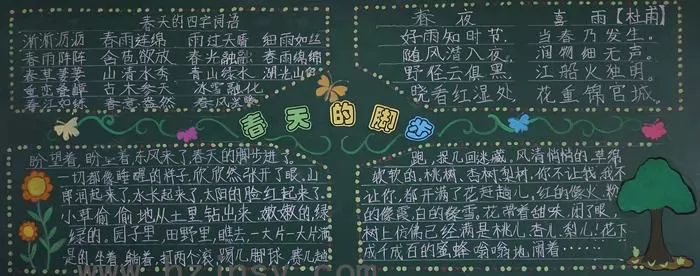 春天的四字词语
淅淅沥沥 春雨连绵 雨过天晴 细雨如丝
春雨阵阵 含苞欲放 春光融融 春雨绵绵
春草萋萋 山清水秀 青山绿水 湖光山色
重峦叠嶂 古木参天 冰雪融化
春江如练 春意盎然 春风
春夜 喜雨【杜甫】
好雨知时节, 当春乃发生。
随风潜入夜, 润物细无声。
野径云俱黑, 江船火独明。
晓看红湿处, 花重锦官城。
春天的脚步
盼望着,盼望着,东风来了,春天的脚步近了。
一切都像睡醒的样子,欣欣然张开了眼。山
朗润起来了,水长起来了,太阳的脸红起来了。
小草偷偷地从土里钻出来,嫩嫩的,绿
绿的。园子里,田野里,瞧去,一大片一大片满
是的。坐着,躺着,打两个滚,踢几脚球,赛几趟
跑,捉几回迷藏。风清悄悄的,草绵
软软的。桃树、杏树、梨树,你不让我,我不
让你,都开满了花赶趟儿。红的像火,粉
的像霞,白的像雪。花带着甜味,闭了眼,
树上仿佛已经满是桃儿、杏儿、梨儿!花下
成千成百的蜜蜂嗡嗡地闹着……